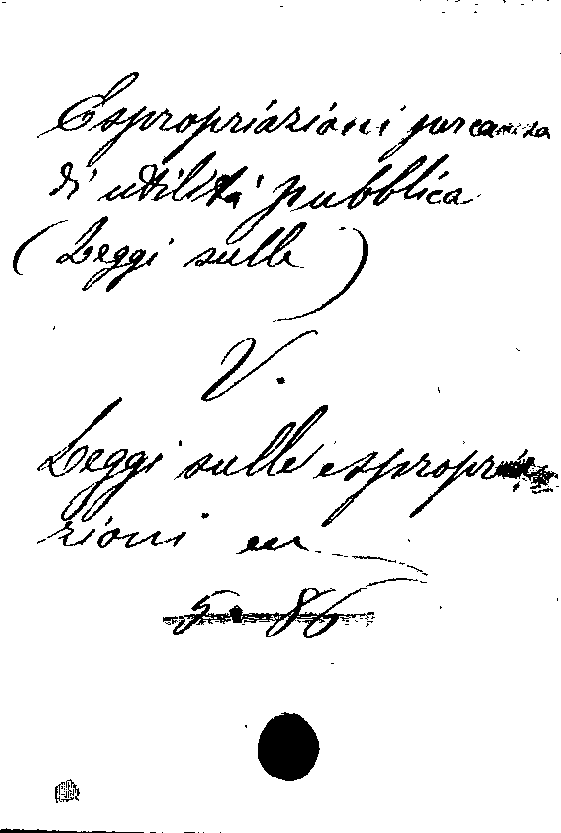 Espropriazioni per causa
di utilità pubblica
(Leggi sulle)
V.
Leggi sulle espropria
zioni ecc
5 • 86